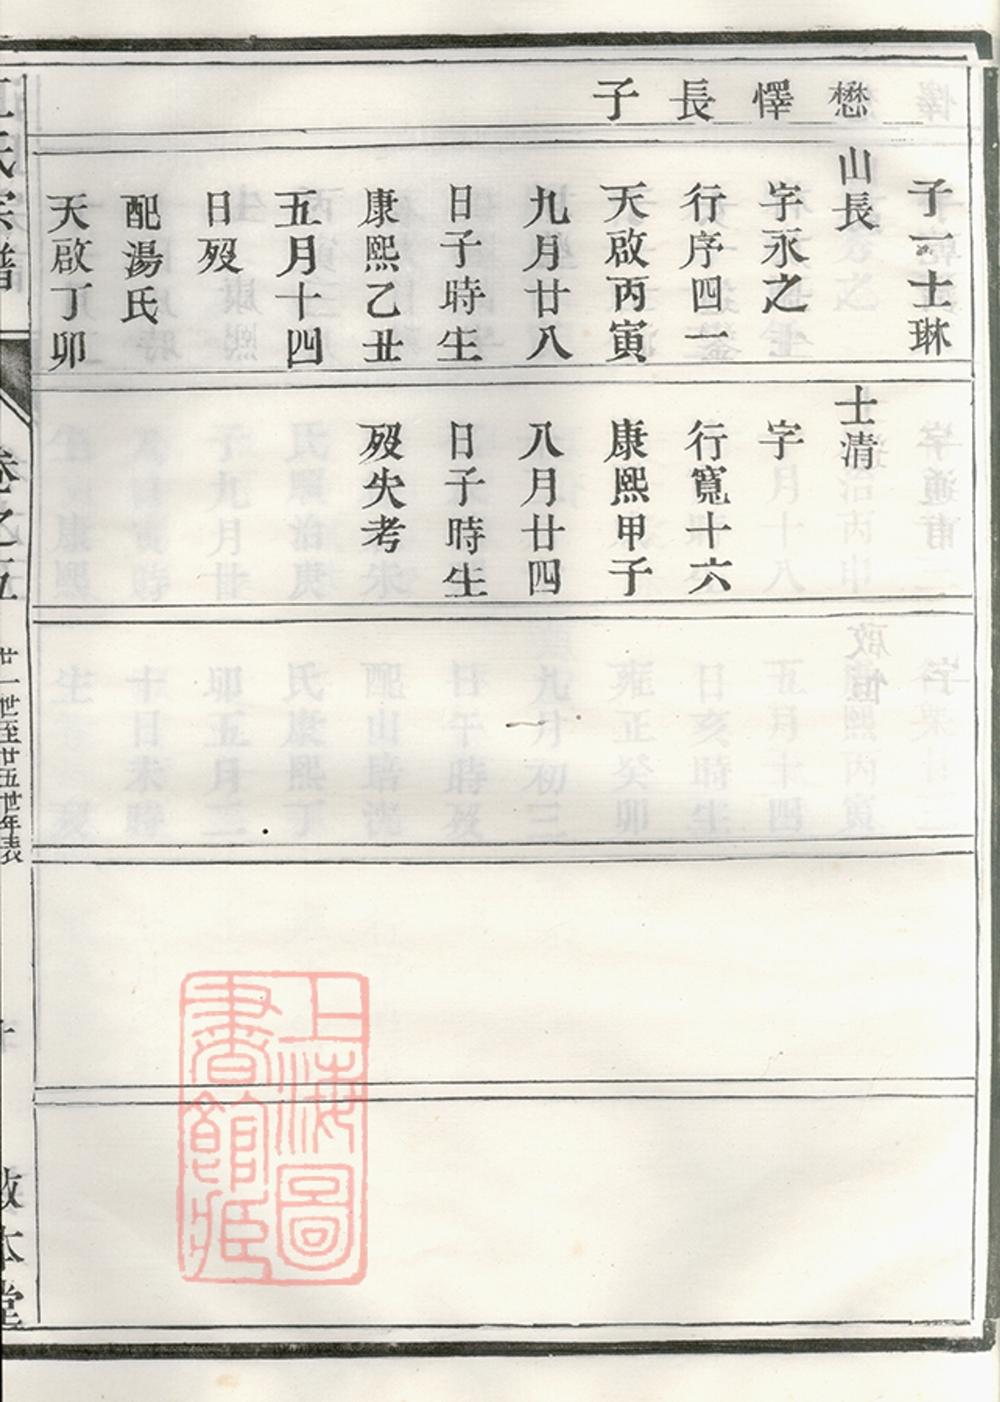 懋懌長子
子一士琳
山長
字永之
行序四一
天啟丙寅
九月廿八
日子時生
康熙乙丑
五月十四
日歿
配湯氏
天啟丁卯
士清
字
行寬十六
康熙甲子
八月廿四
日子時生
歿失考
氏宗譜
卷之五
廿一世至廿五世年表
敬本堂
上海圖書館藏